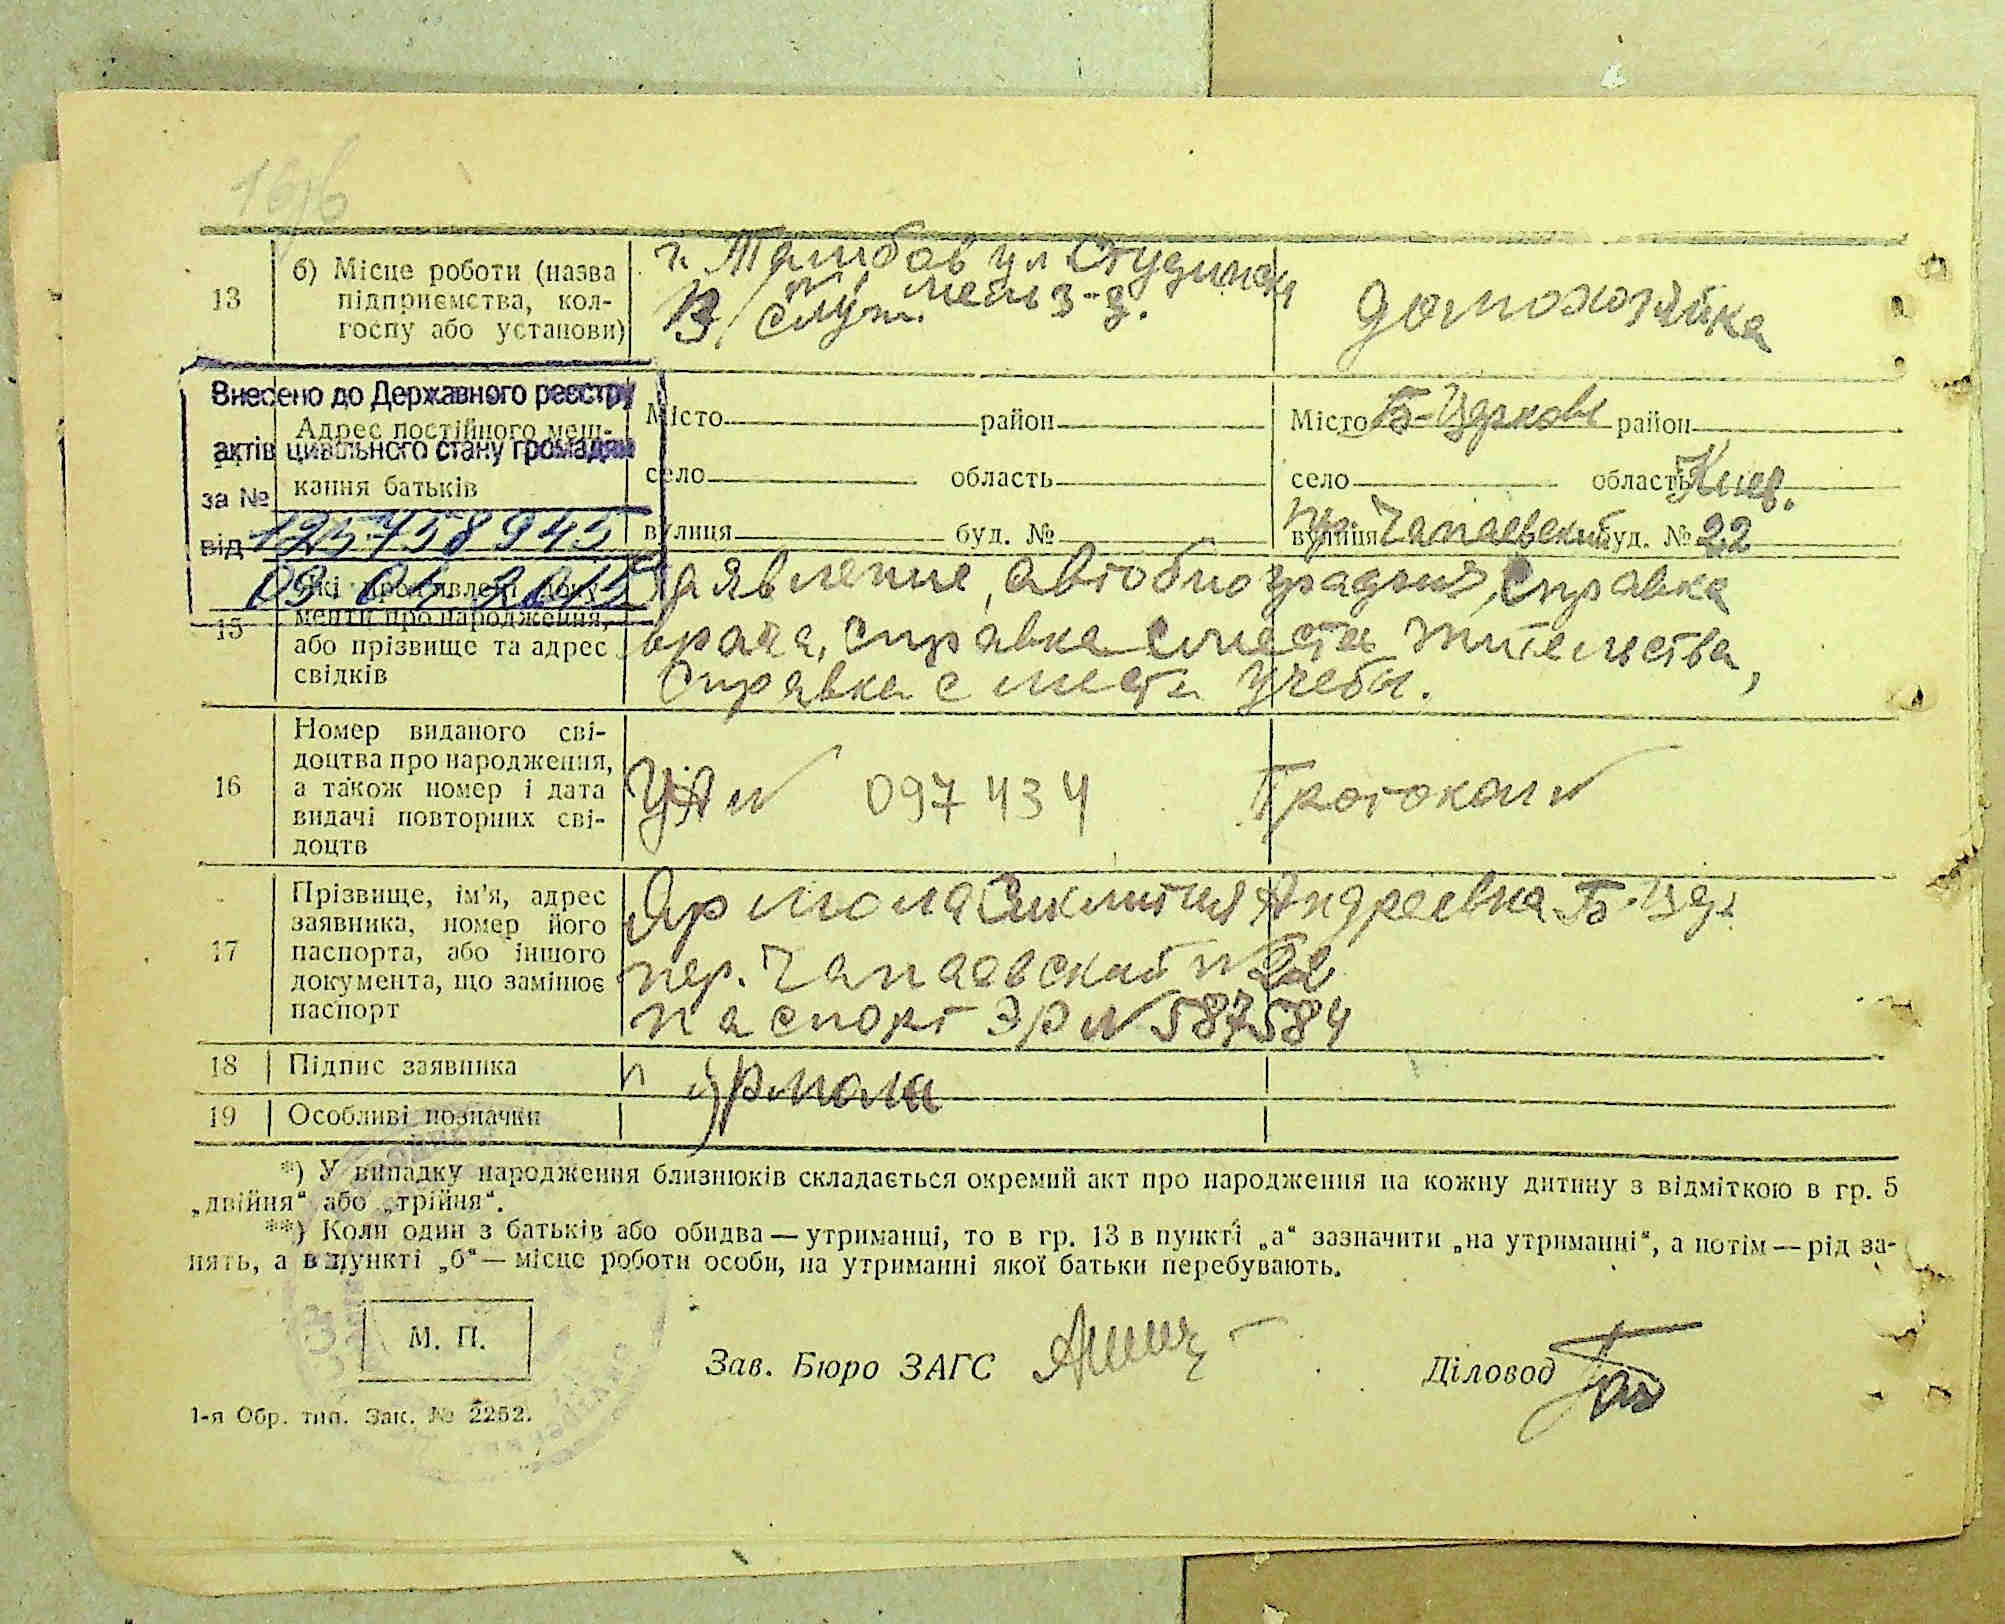 13
б) Місце роботи (назва
підприємства, кол-
госпу або установи)
г. Тамбов ул Студинец
В/служ.
домохозяйка
Внесено до Державного реєстру
актів цивільного стану громадян
за №
від 125758945
Адрес постійного меш-
кання батьків
Місто район
село область
вулиця буд. №
Місто Б-Церковь район
село область Киев.
вулиця пер Чапаевский буд. № 22
15
які пред'явлені доку-
менти про народження,
або прізвище та адрес
свідків
Заявление, автобиография, Справка
врача, справка с места жительства,
Справка с места учебы.
16
Номер виданого сві-
доцтва про народження,
а також номер і дата
видачі повторних сві-
доцтв
№ 097434 Протокол №
17
Прізвище, ім'я, адрес
заявника, номер його
паспорта, або іншого
документа, що замінює
паспорт
Ярмола Андреевна Б-Цер.
пер. Чапаевский № 22
паспорт ЭР № 587584
18 Підпис заявника
п Ярмола
19 Особливі позначки
*) У випадку народження близнюків складається окремий акт про народження на кожну дитину з відміткою в гр. 5
„двійня“ або „трійня“.
**) Коли один з батьків або обидва — утриманці, то в гр. 13 в пункті „а“ зазначити „на утриманні“, а потім — рід за-
нять, а в пункті „б“ — місце роботи особи, на утриманні якої батьки перебувають.
М. П.
Зав. Бюро ЗАГС
Діловод
1-я Обр. тип. Зак. № 2252.